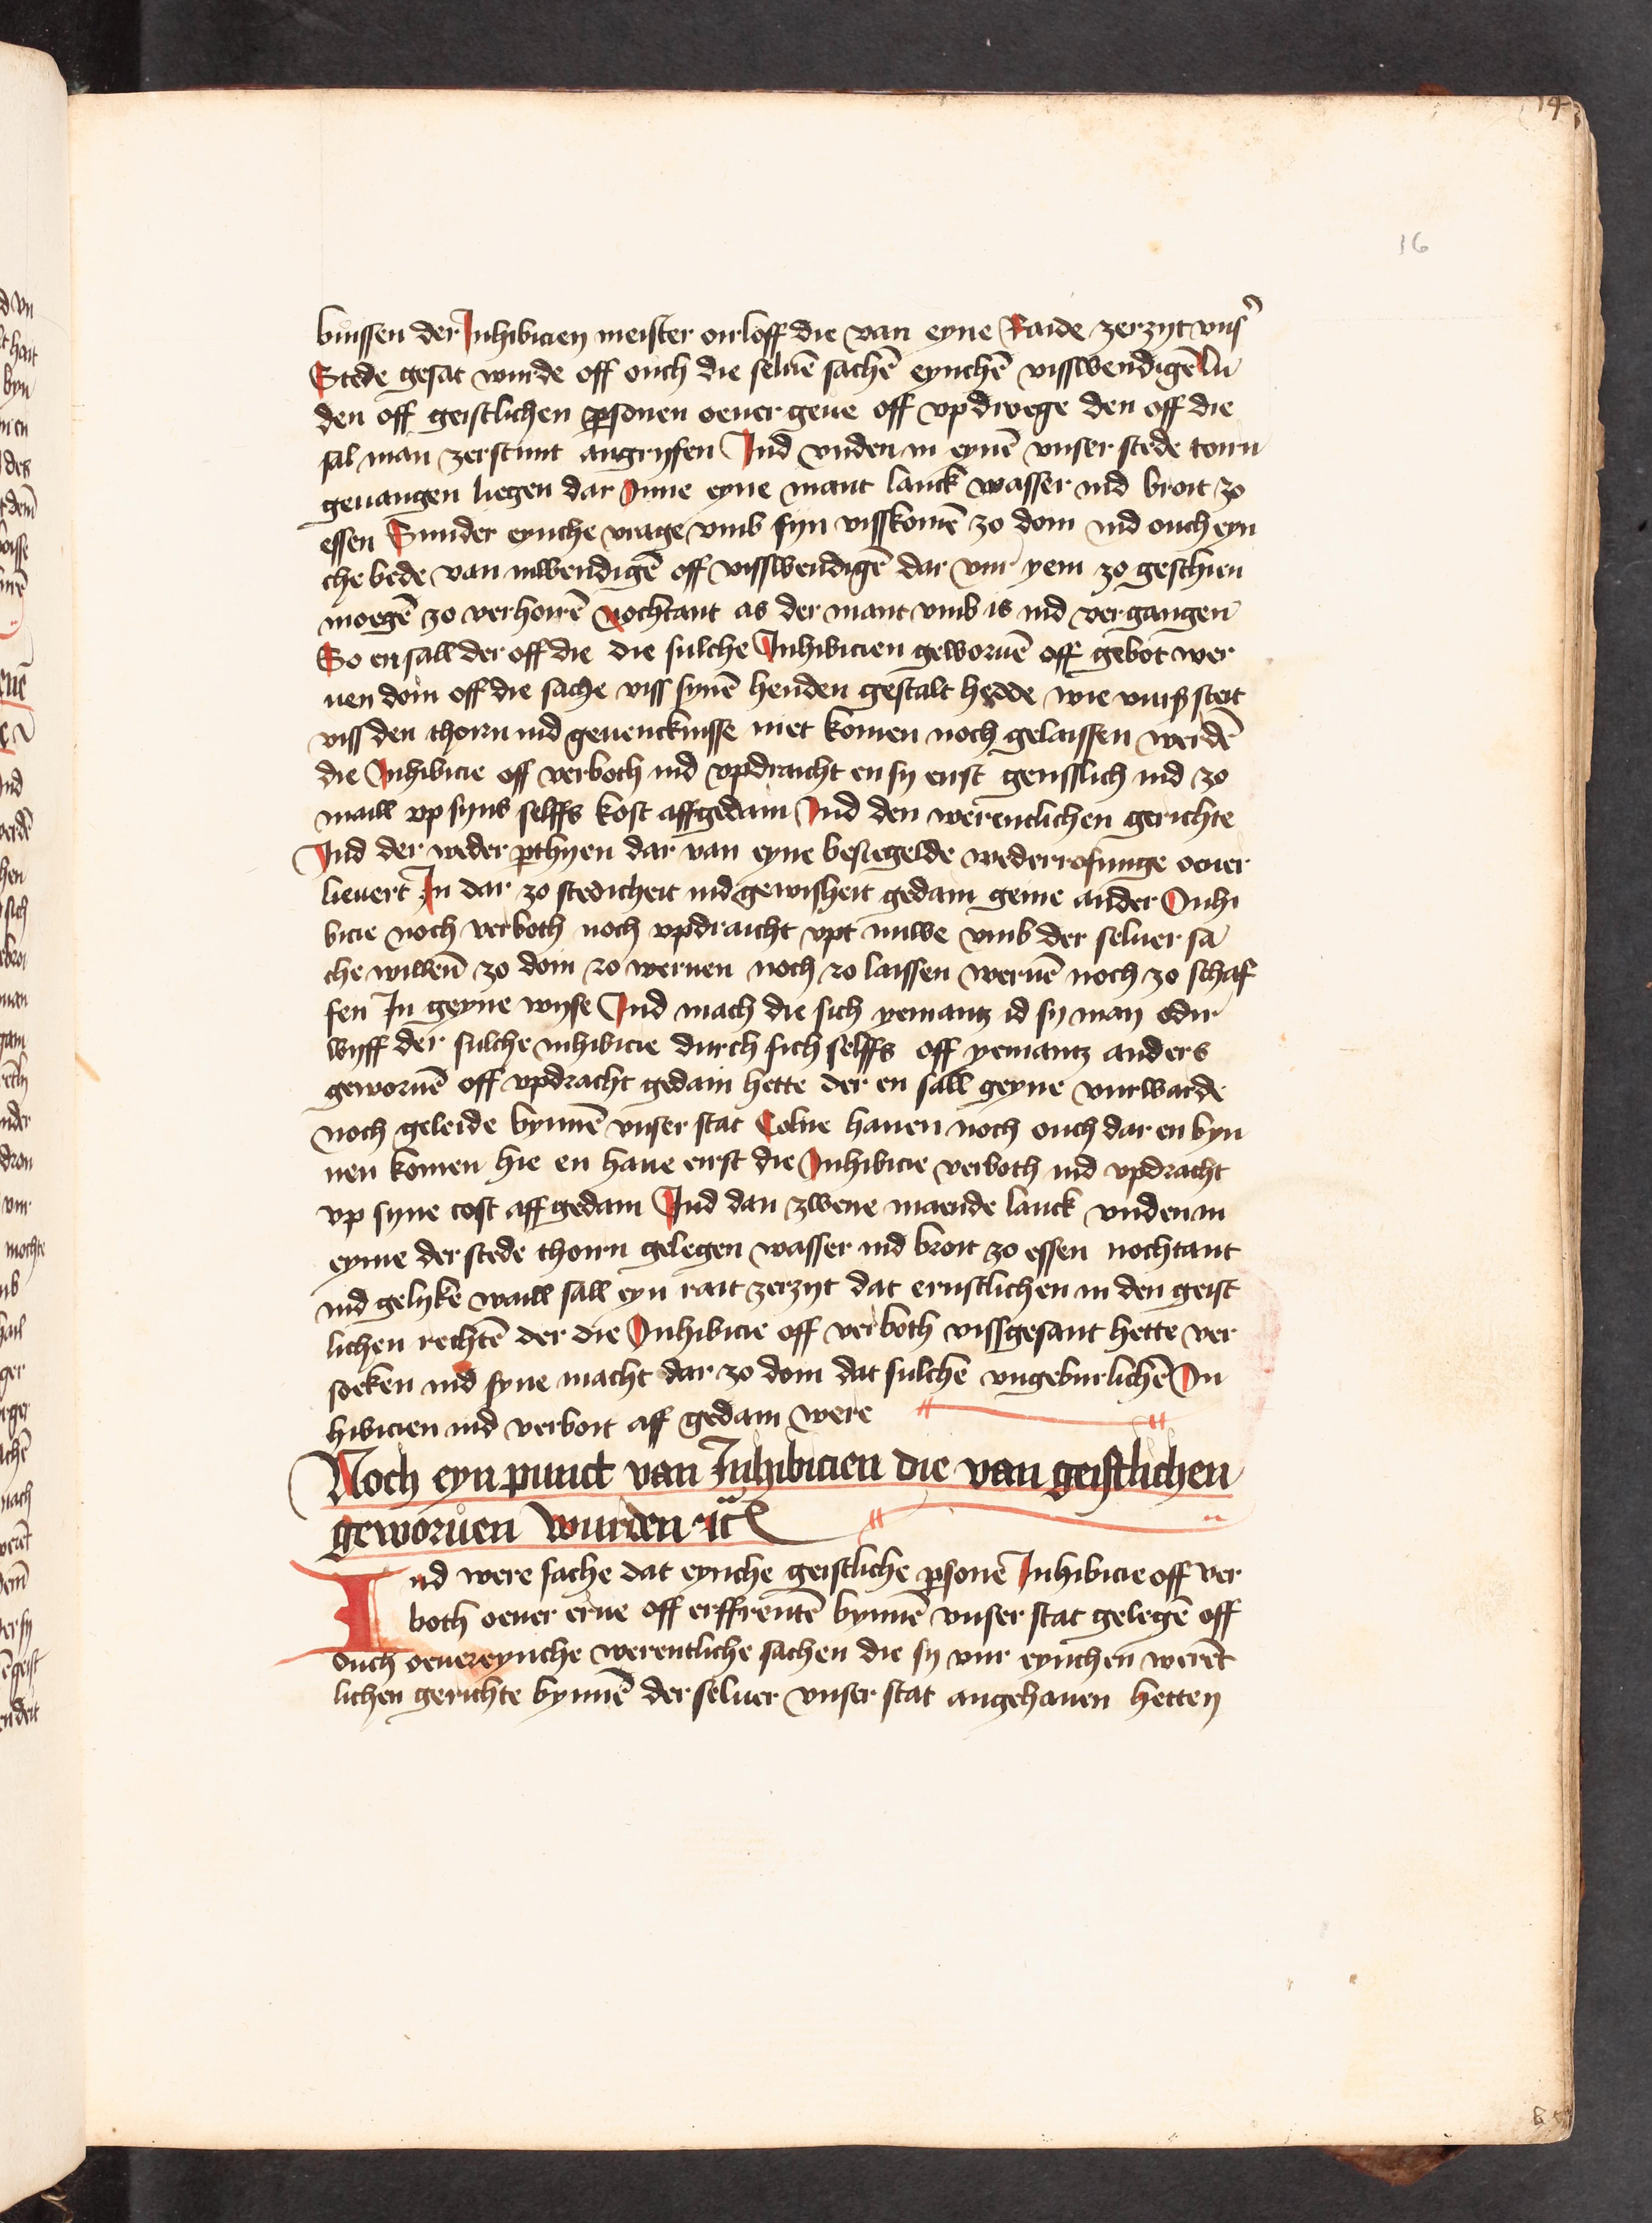 14
16
buissen der Inhibicien meister oirloff die van eyne Raide zerzyt vnsʾ
Stede gesat wurde off ouch die seluē sachē eynchē visswendigē lu
den off geistlichen psonen oeuer geue off vpdroege den off die
sal man zerstunt angryfen Ind vnden in eynē vnser stede torn
geuangen liegen dar Inne eyne mant lanck wasser ind broit zo
essen Sunder eynche vrage vmb syn visskomē zo doin ind ouch eyn
che bede van inwendigē off visswendigē dar vur yem zo geschien
moegē zo verhoirē Nochtant as der mant vmb is ind vergangen
So en sall der off die die sulche Inhibicien geworuē off gebot wer
uen doin off die sache viss synē henden gestalt hedde wie vurß steit
viss den thorn ind geuencknisse niet komen noch gelaissen werdē
die Inhibicie off verboth ind vpdraicht en sy eirst gensslich ind zo
maill vp syns selffs kost affgedain Ind den werentlichen gerichte
Ind der weder pthyen dar van eyne besiegelde wederroffunge oeuer
lieuert In dar zo stedicheit ind gewisheit gedain geine ander Inhi
bicie noch verboth noch vpdraicht vpt nuwe vmb der seluer sa
che willen zo doin zo weruen noch zo laissen weruē noch zo schaf
fen In geyne wyse Ind mach die sich yemantz id sy man odir
wyff der sulche inhibicie durch sich selffs off yemantz anders
geworuē off vpdracht gedain hette der en sall geyne vurwarde
noch geleide bynnē vnser stat Colne hauen noch ouch dar en byn
nen komen hie en haue eirst die Inhibicie verboth ind vpdracht
vp syne cost aff gedain Ind dan zwene maende lanck vnden in
eyme der stede thorn gelegen wasser ind broit zo essen nochtant
ind gelyke waill sall eyn rait zerzyt dat ernstlichen in den geist
lichen rechtē der die Inhibicie off verboth vissgesant hette ver
soeken ind syne macht dar zo doin dat sulche vngeburlichē In
hibicien ind verboit aff gedain were
Noch eyn punct van Inhibicien die van geistlichen
geworuen wurden ꝛc
Ind were sache dat eynche geistliche psonē Inhibicie off ver
both oeuer erue off erffrentē bynnē vnser stat gelegē off
ouch oeuer eynche werentliche sachen die sy vur eynchen werēt
lichen gerichte bynnē der seluer vnser stat angehauen hetten